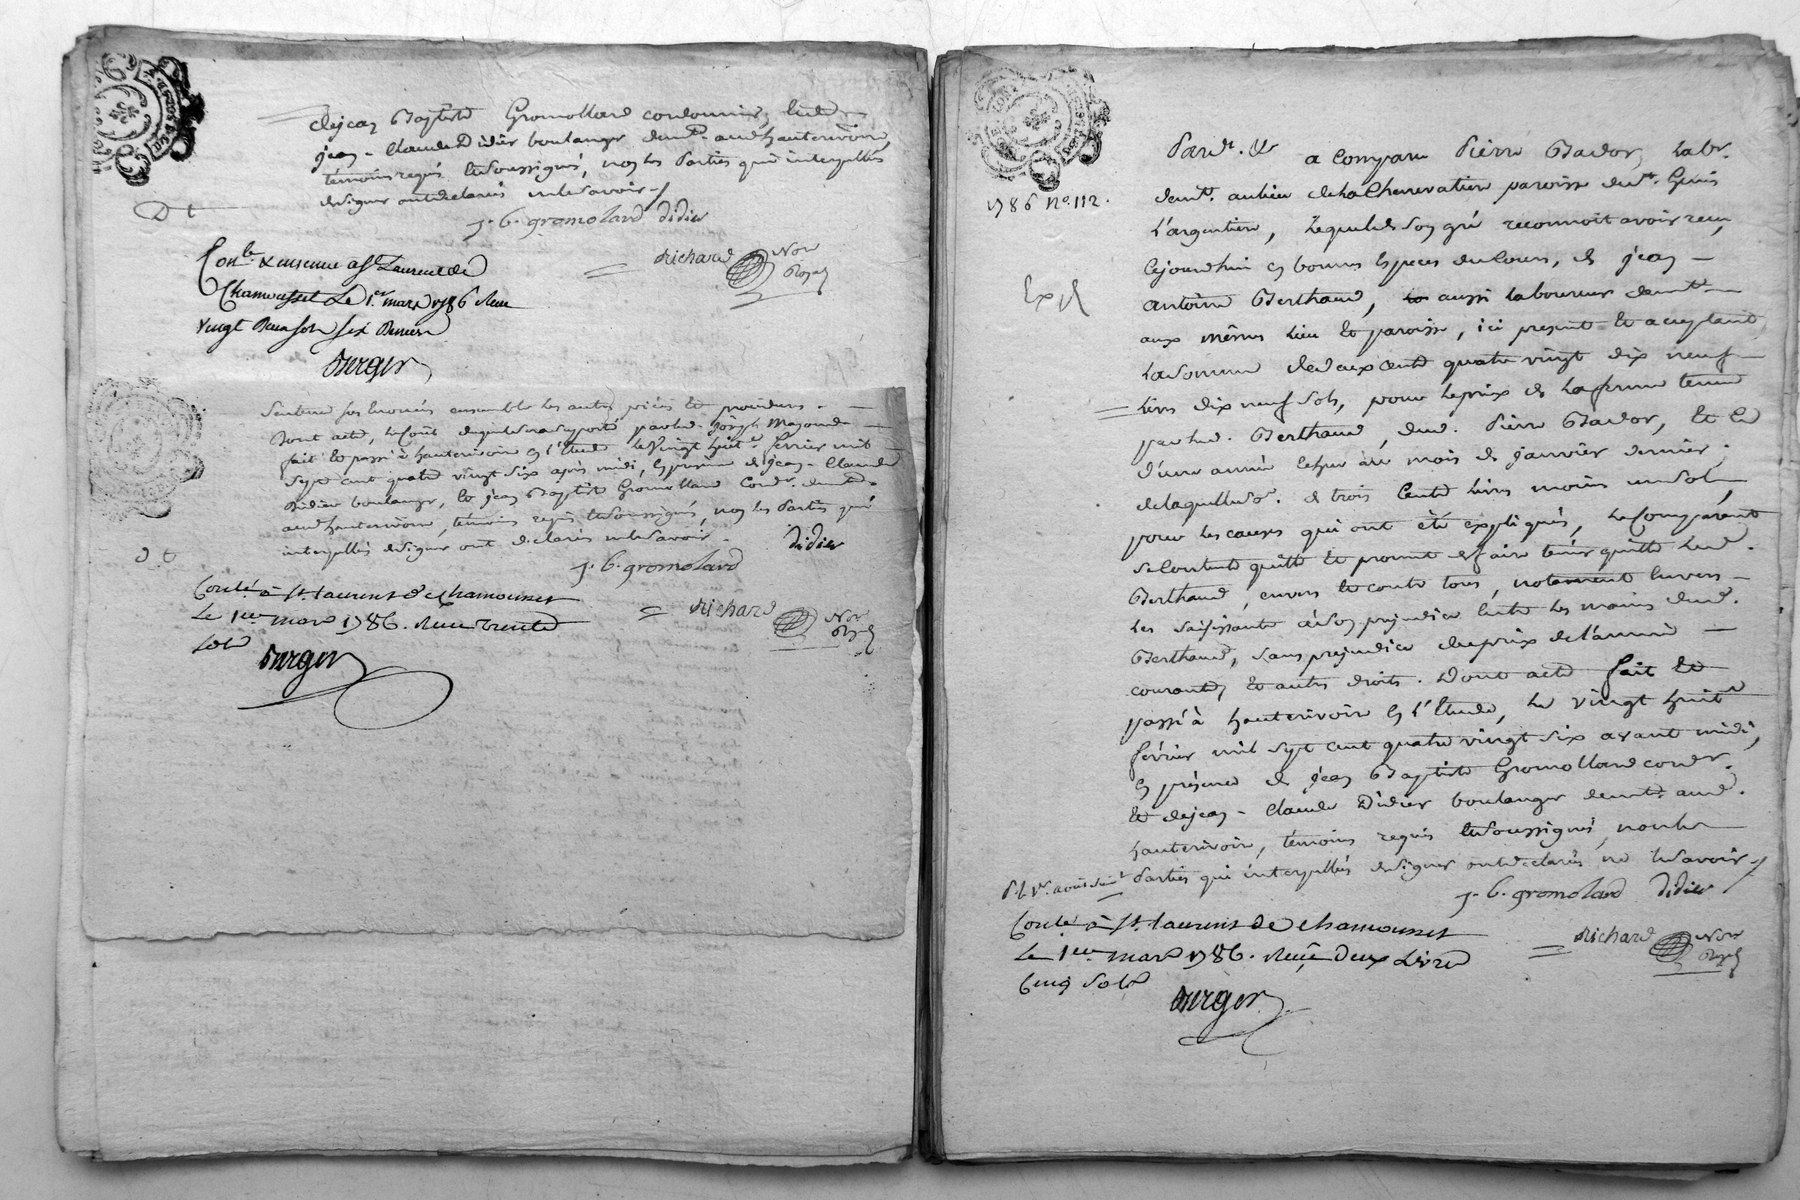 de jean Baptiste Gromollard cordonnier, et de
jean-Claude Didier boulanger demt. aud. hauterivoire,
témoins requis et soussignés, non les Parties qui interpellés
de signer ont declaré ne le savoir
J. b. gromolard didier
Conlé. & insinué a St Laurent de
Chamousset Le 1er. mars 1786 Recu
vingt Deux sols six Deniers
richard Nore
Royal
Berger
sont acte, le coût duquel sera suporté par led. Joseph
fait et passé à hauterivoire en l'Etude le vingt huite. février mil
sept cent quatre vingt six après midi, en présence de jean-Claude
Didier boulanger, et jean Baptiste Gromollard Condr. demt.
aud. hauterivoire, témoins requis et soussignés, non les Parties qui
interpellés de signer ont déclaré ne le savoir.
didier
J. b. gromolard
Conlé. à St. laurent de chamousset
Le 1er mars 1786. Recu trente
sols
richard Nore
Royal
Berger
Pardt. &c a Comparu Pierre Bador, Labr.
1786 No. 112.
demt. au lieu de la Chenevatiere paroisse de St. Genis
L'argentiere, Lequel de son gré reconnoit avoir recu,
Cejourdhui en bonnes Especes du Cours, de jean
antoine Berthaud, aussi Laboureur demt.
aux mêmes Lieu et paroisse, ici present et acceptant,
La Somme de deux cents quatre vingt dix neuf
Livres dix neuf sols, pour Le prix de La ferme tenue
par led. Berthaud, dud. Pierre Bador, et ce
d'une année echue au mois de janvier dernier;
de laquelle Se. de trois Cents Livres moins un sol,
pour les causes qui ont été expliqués, Le Comparant
se Contente quitte et promet de faire tenir quitte Led.
Berthaud, envers et contre tous, notamment Envers
les Saisissants à son préjudice entre les mains dud.
Berthaud, sans prejudice du prix de l'année
courante, et autres droits. Dont acte fait et
passé à hauterivoire en l'Etude, Le vingt huite
février mil sept cent quatre vingt six avant midi,
en présence de jean Baptiste Gromollard condr.
et de jean-Claude Didier boulanger demt. aud.
hauterivoire, témoins requis et soussignés, non les
Parties qui interpellés de signer ont declaré ne le savoir
J. b. gromolard didier
Conlé. à St. laurent de chamousset
Le 1er mars 1786. Recu Deux Livres
Cinq Sols
richard Nore
Royal
Berger